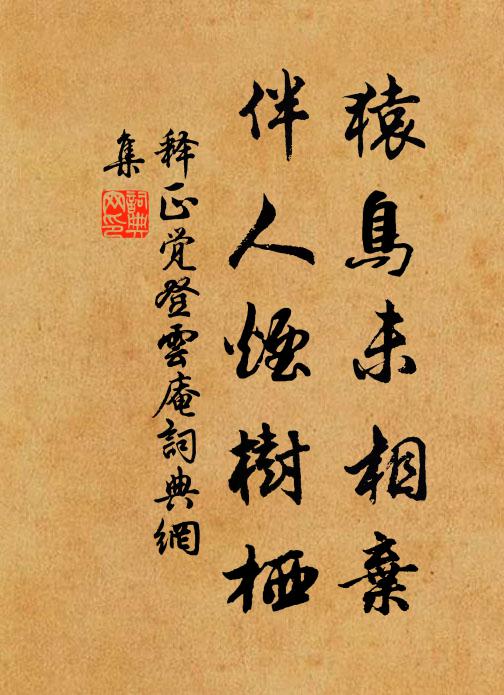 猿鳥未相棄
伴人煙樹栖
释正覚登雲庵詞典網
集
詞典網印